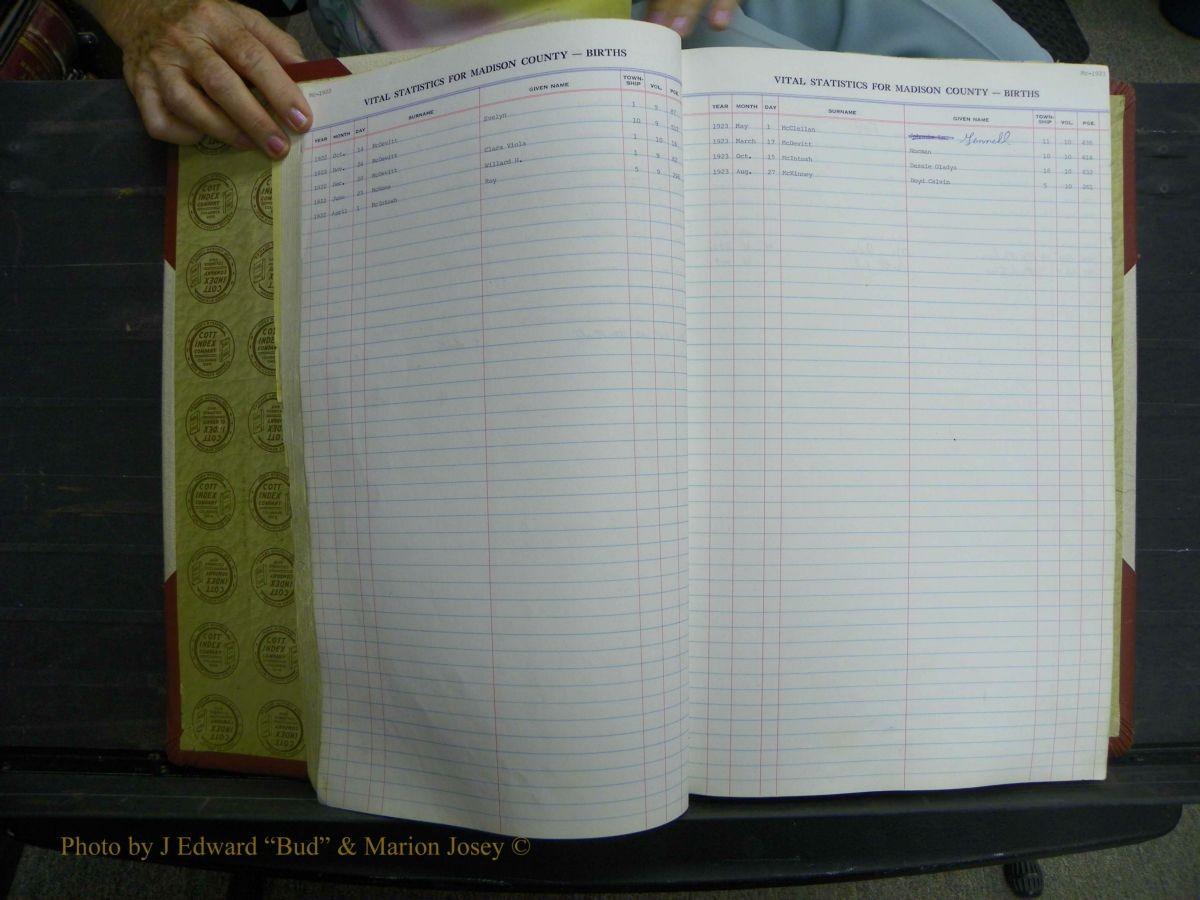 Mc-1922
VITAL STATISTICS FOR MADISON COUNTY — BIRTHS
YEAR MONTH DAY SURNAME GIVEN NAME TOWN-SHIP VOL. PGE.
1922 Oct. 14 McDevitt Evelyn 1 9
1922 Nov. 24 McDevitt 10 9
1922 Dec. McDevitt Clara Viola 1 10
1922 June 23 Willard H. 1 9
1922 April 1 McIntosh Roy 5 9
Mc-1923
VITAL STATISTICS FOR MADISON COUNTY — BIRTHS
YEAR MONTH DAY SURNAME GIVEN NAME TOWN-SHIP VOL. PGE.
1923 May 1 McClellan 11 10
1923 March 17 McDevitt Norman 10 10
1923 Oct. 15 McIntosh Gladys 16 10
1923 Aug. 27 McKinney Boyd Calvin 5 10
COTT INDEX COMPANY
Photo by J Edward “Bud” & Marion Josey ©